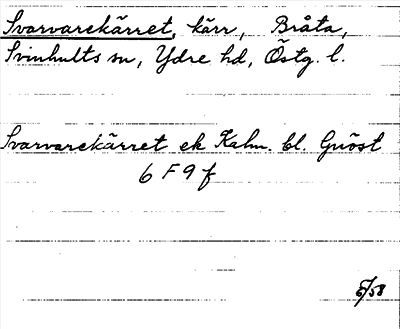 Svarvarekärret, kärr, Bråta,
Svinhults sn, Ydre hd, Östg. l.
Svarvarekärret ek Kalm. bl. Gnöst
6 F 9 f
5/58